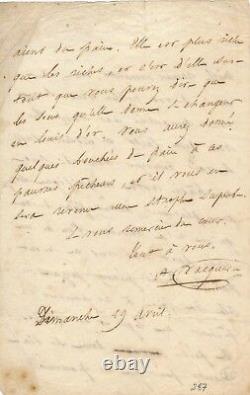 aient du pain. Elle est plus riche
que les riches, et c'est d'elle sur-
tout que vous pourrez dire que
les sous qu'elle donne se changent
en louis d'or. Vous aurez donné
quelques bouchées de pain à ces
pauvres pêcheurs, et il vous en
sera revenu une strophe superbe.
Je vous remercie du cœur.
Tout à vous.
A Vacquerie
Dimanche 29 avril.
257
© www.ebay.com